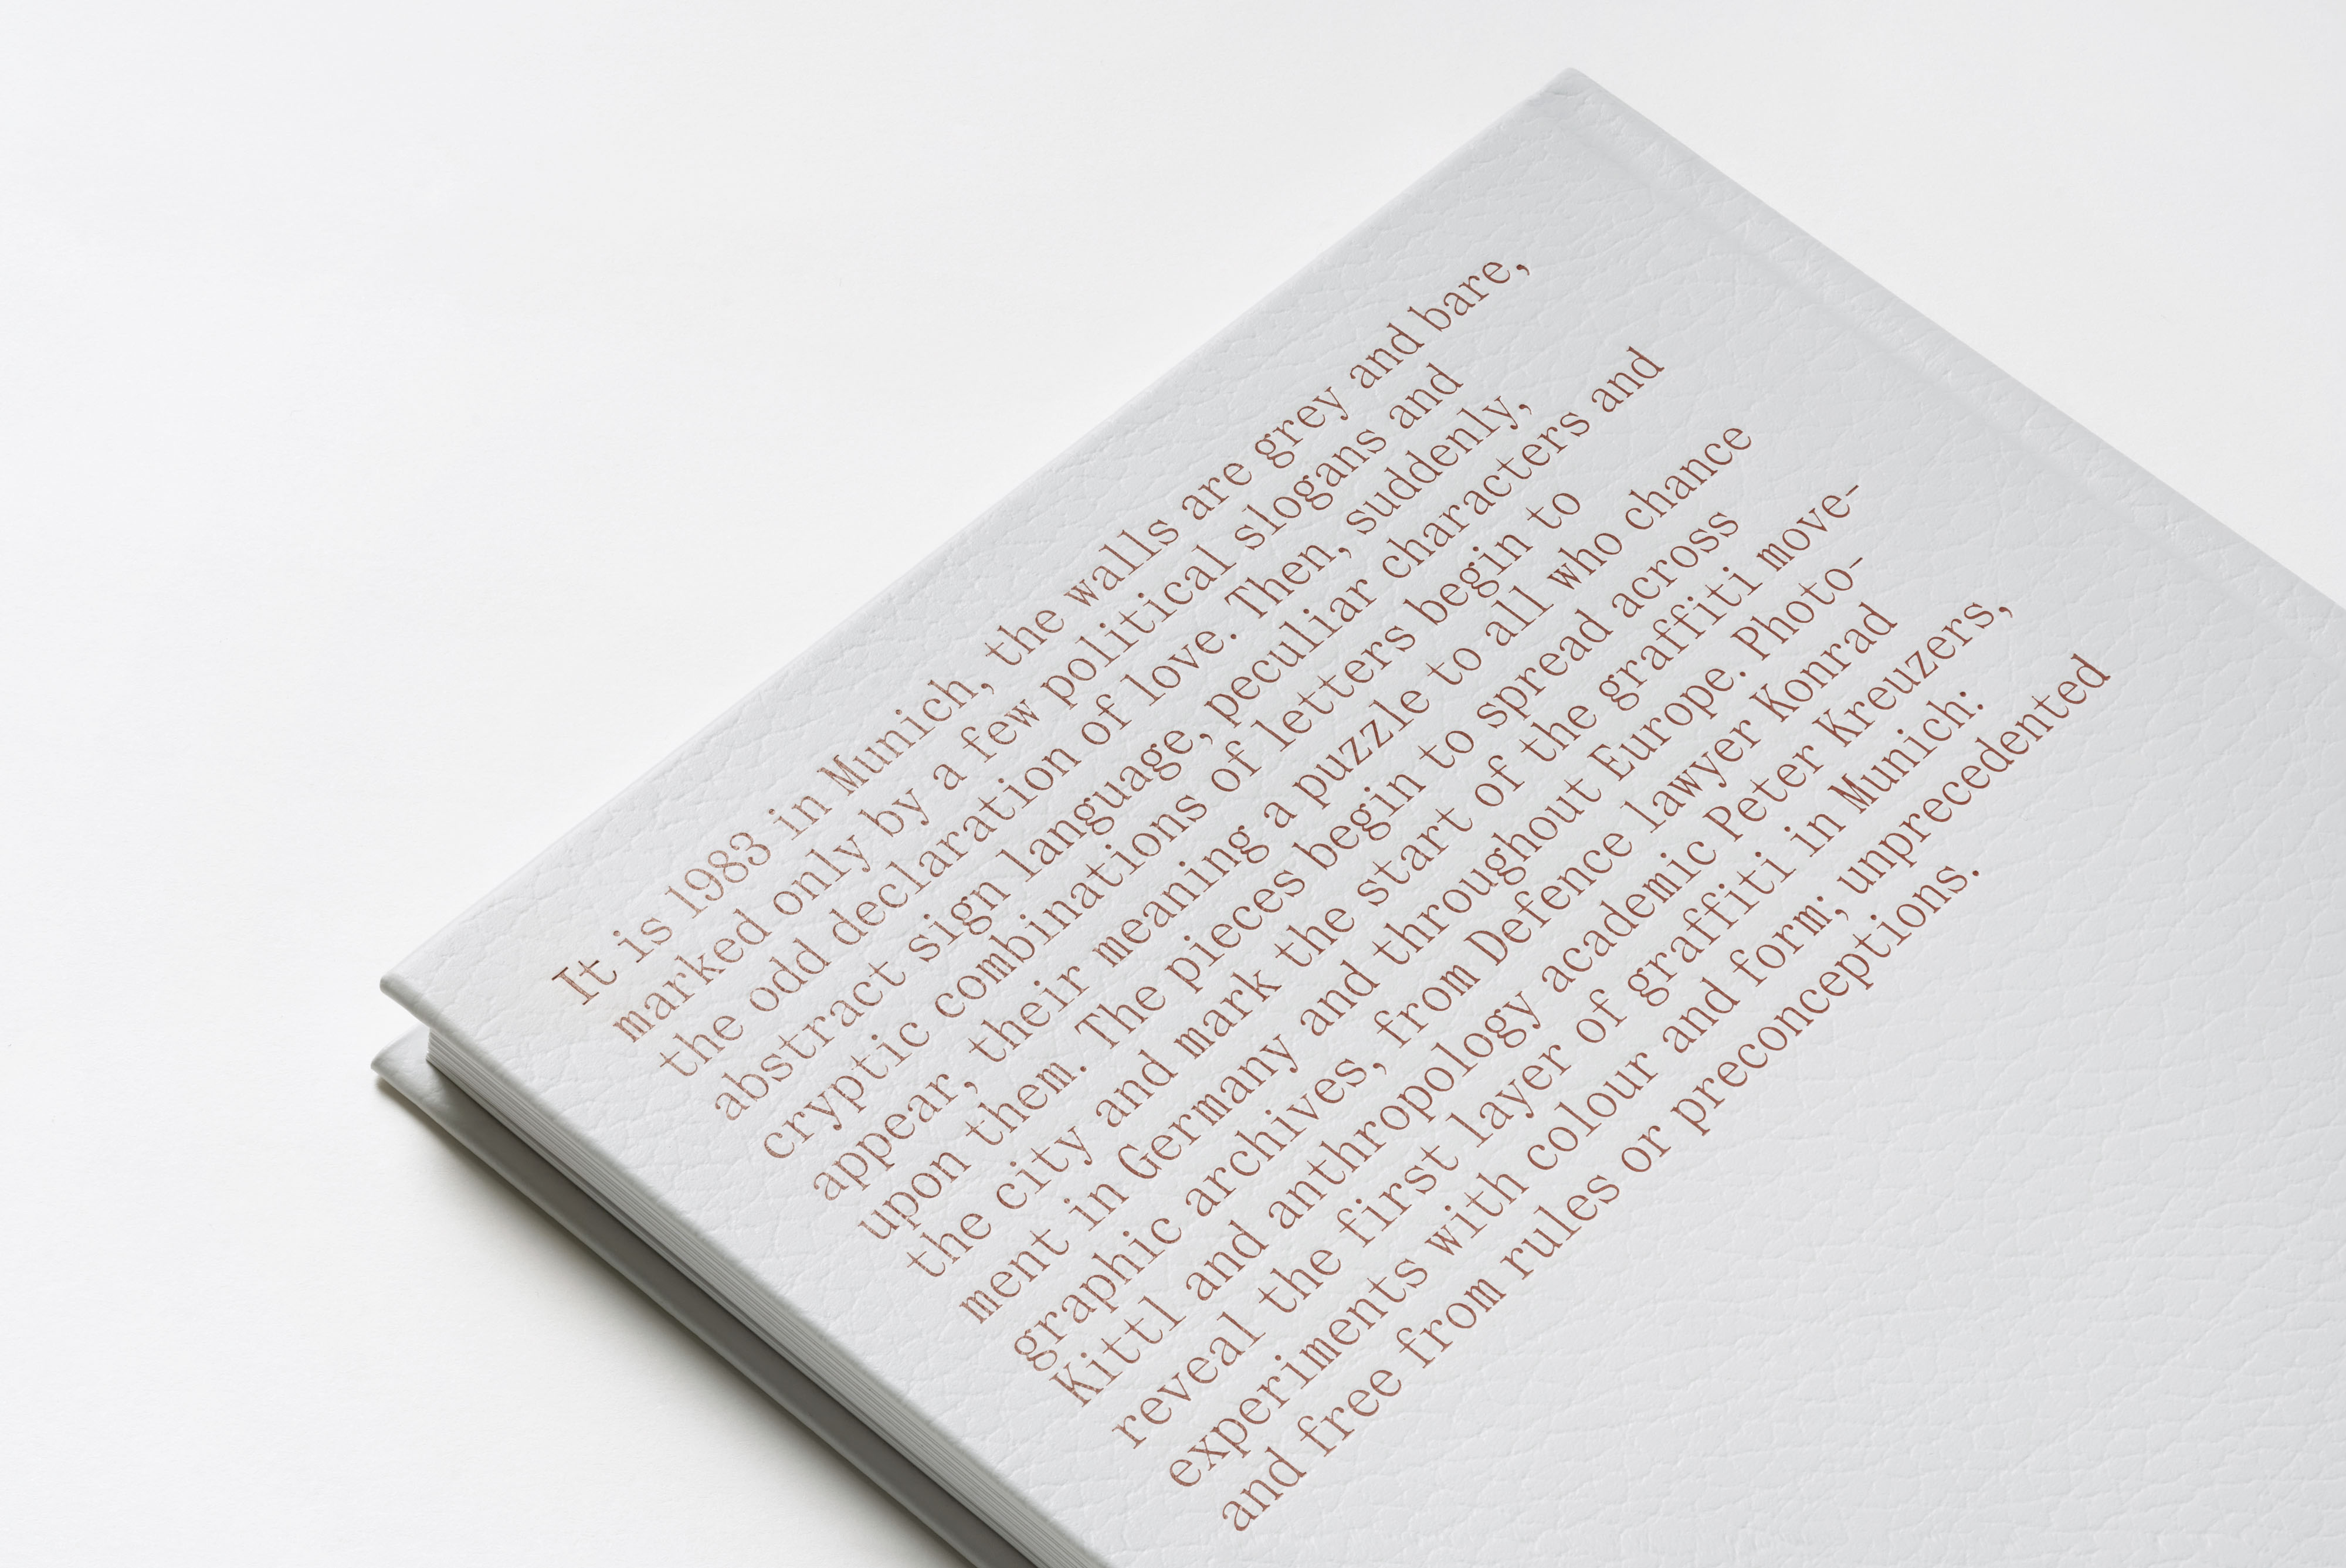 It is 1983 in Munich, the walls are grey and bare,
marked only by a few political slogans and
the odd declaration of love. Then, suddenly,
abstract sign language, peculiar characters and
cryptic combinations of letters begin to
appear, their meaning a puzzle to all who chance
upon them. The pieces begin to spread across
the city and mark the start of the graffiti move-
ment in Germany and throughout Europe. Photo-
graphic archives, from Defence lawyer Konrad
Kittl and anthropology academic Peter Kreuzers,
reveal the first layer of graffiti in Munich:
experiments with colour and form; unprecedented
and free from rules or preconceptions.